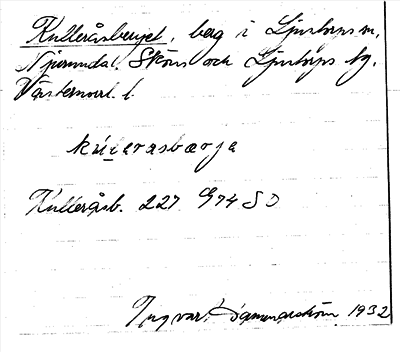 Kulleråsberget, berg i Ljustorps sn,
Njurunda, Sköns och Ljustorps tg,
Västernorrl. l.
kúlerasbærja
Kulleråsb. 227 G74 SO
Ingvar Hammarström 1932